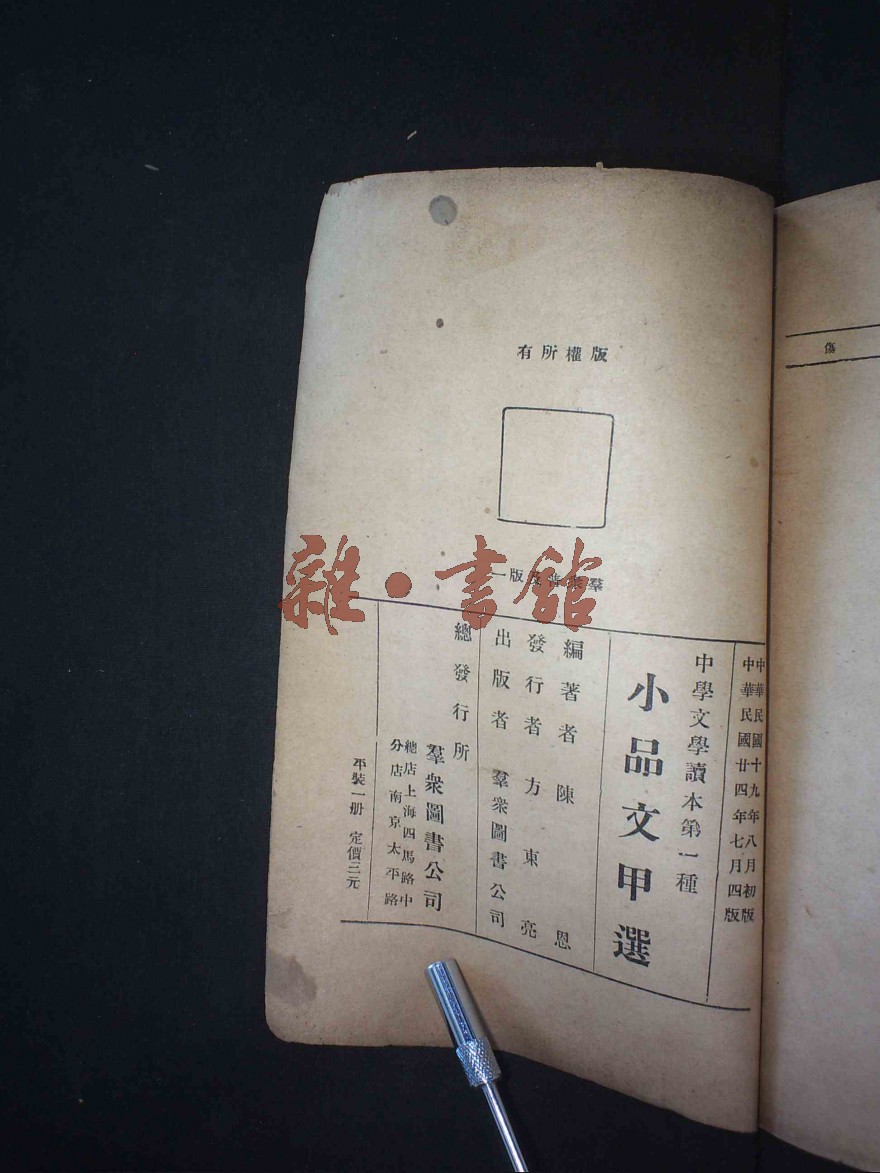 版權所有
羣衆普及版一
中華民國十九年八月初版
中華民國廿四年七月四版
中學文學讀本第一種
小品文甲選
編著者 陳恩
發行者 方東亮
出版者 羣衆圖書公司
總發行所
羣衆圖書公司
總店上海四馬路中
分店南京太平路
平裝一册 定價三元
傷
雜·書館